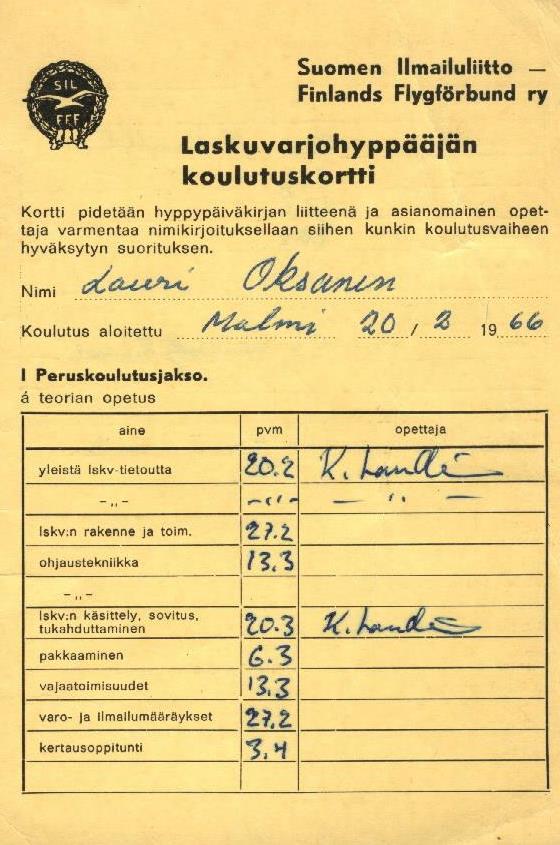 SIL
FFF
Suomen Ilmailuliitto —
Finlands Flygförbund ry
Laskuvarjohyppääjän
koulutuskortti
Kortti pidetään hyppypäiväkirjan liitteenä ja asianomainen opet-
taja varmentaa nimikirjoituksellaan siihen kunkin koulutusvaiheen
hyväksytyn suorituksen.
Nimi Lauri Oksanen
Koulutus aloitettu Malmi 20 / 2 1966
I Peruskoulutusjakso.
á teorian opetus
aine pvm opettaja
yleistä lskv-tietoutta 20.2 K. Landé
– „ – – „ – – „ –
lskv:n rakenne ja toim. 27.2
ohjaustekniikka 13.3
– „ –
lskv:n käsittely, sovitus,
tukahduttaminen 20.3 K. Landé
pakkaaminen 6.3
vajaatoimisuudet 13.3
varo- ja ilmailumääräykset 27.2
kertausoppitunti 3.4